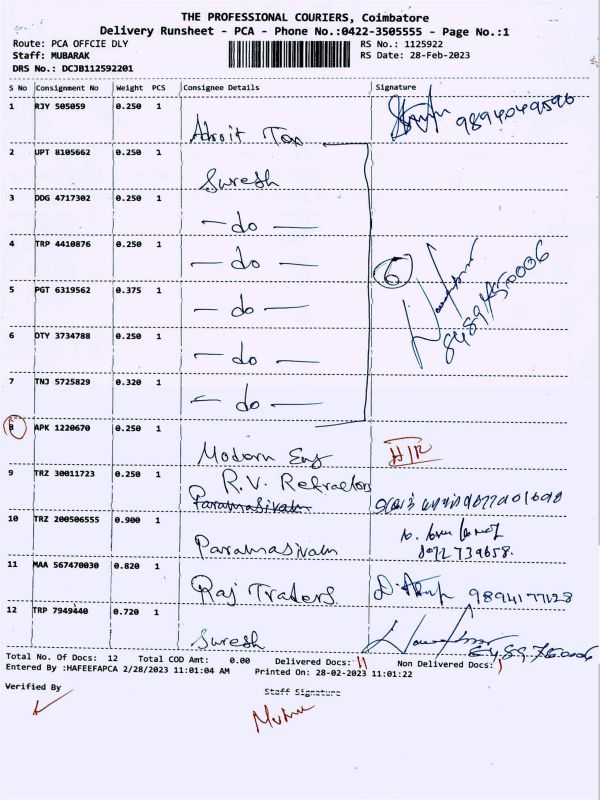 THE PROFESSIONAL COURIERS, Coimbatore
Delivery Runsheet - PCA - Phone No.:0422-3505555 - Page No.:1
Route: PCA OFFCIE DLY RS No.: 1125922
Staff: MUBARAK RS Date: 28-Feb-2023
DRS No.: DCJB112592201
S No Consignment No Weight PCS Consignee Details Signature
1 RJY 505059 0.250 1 Adroit Tax 9894049596
2 UPT 8105662 0.250 1 Suresh
3 DDG 4717302 0.250 1 - do -
4 TRP 4410876 0.250 1 - do - 6
5 PGT 6319562 0.375 1 - do -
6 DTY 3734788 0.250 1 - do -
7 TNJ 5725829 0.320 1 - do -
8 APK 1220670 0.250 1 Modern Eng
9 TRZ 30011723 0.250 1 R.V. Refractors
Paramasivam
10 TRZ 200506555 0.900 1 Paramasivam
11 MAA 567470030 0.820 1 Raj Traders
12 TRP 7949440 0.720 1 Suresh
Total No. Of Docs: 12 Total COD Amt: 0.00 Delivered Docs: 11 Non Delivered Docs: 1
Entered By :HAFEEFAPCA 2/28/2023 11:01:04 AM Printed On: 28-02-2023 11:01:22
Verified By Staff Signature